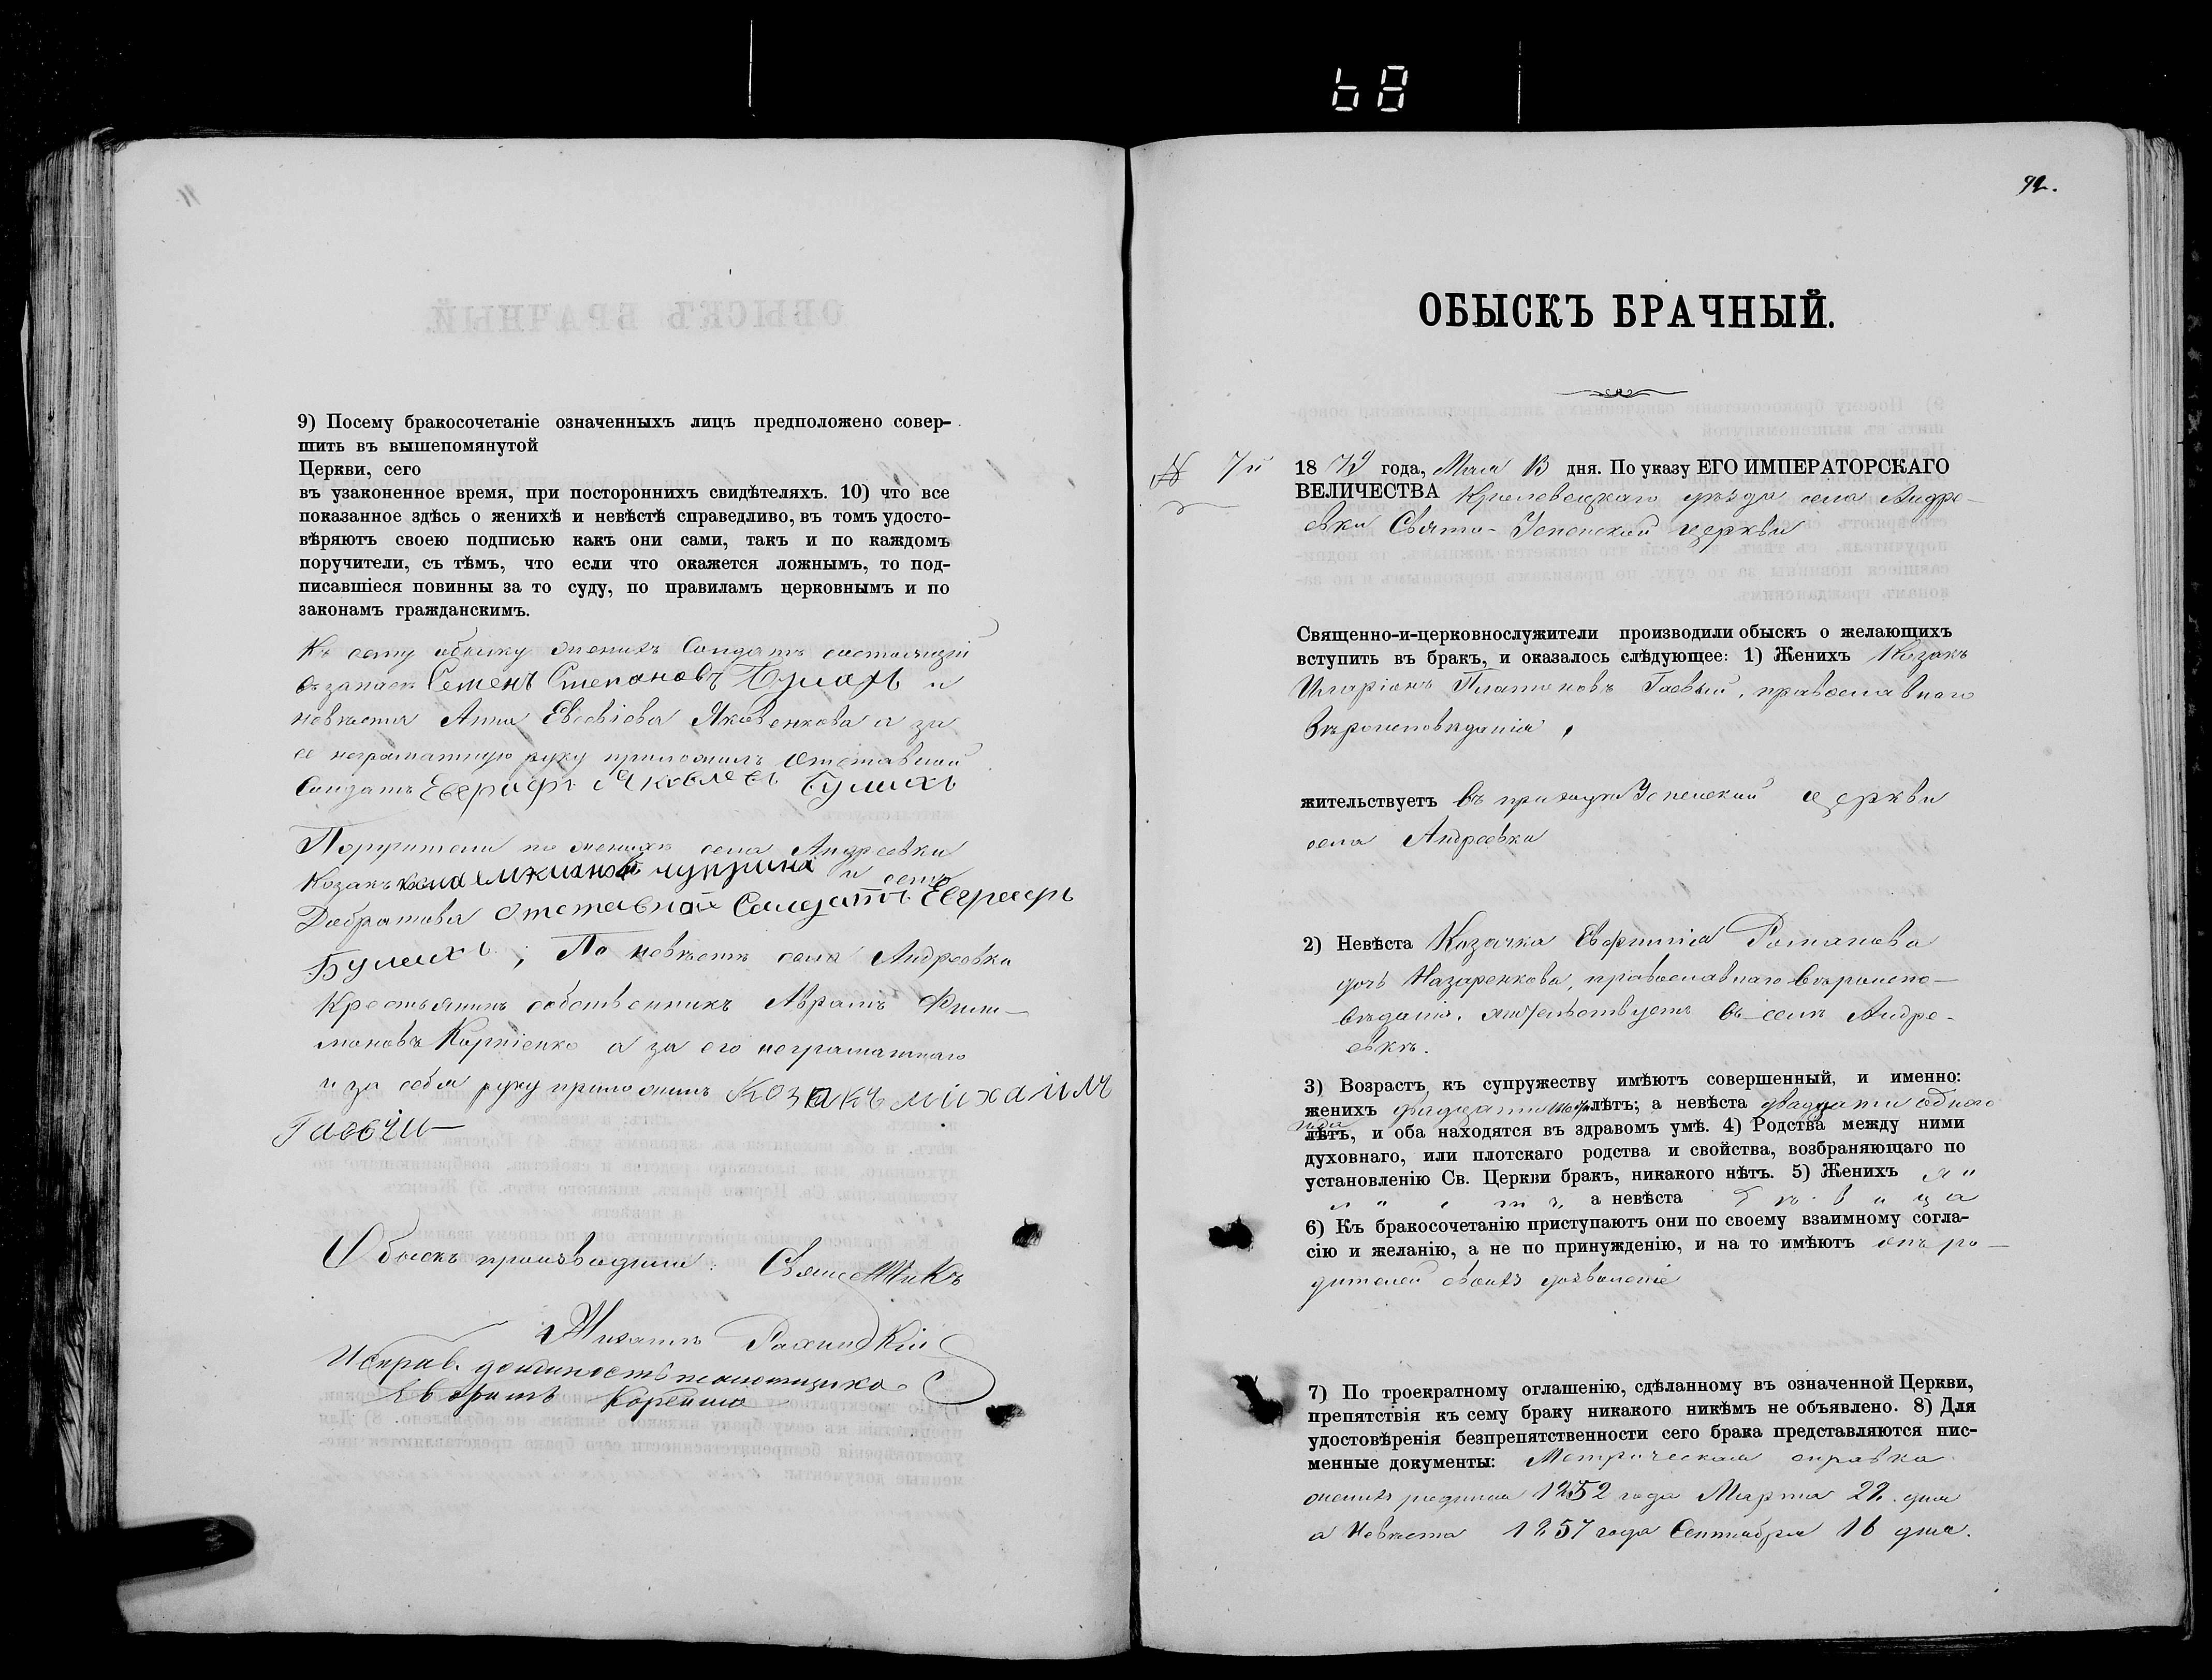 68
9) Посему бракосочетаніе означенныхъ лицъ предположено совер-
шить въ вышепомянутой
Церкви, сего
въ узаконенное время, при постороннихъ свидѣтеляхъ. 10) что все
показанное здѣсь о женихѣ и невѣстѣ справедливо, въ томъ удосто-
вѣряютъ своею подписью какъ они сами, такъ и по каждомъ
поручители, съ тѣмъ, что если что окажется ложнымъ, то под-
писавшіеся повинны за то суду, по правиламъ церковнымъ и по
законамъ гражданскимъ.
Къ сему обыску женихъ Солдатъ состоящій
въ запасѣ Семенъ Степановъ и
невѣста Анна Евсевіова Яковенкова а за
ее неграматную руку приложилъ отставной
Солдатъ Евграфъ Яковлевъ Булихъ
Поручители по женихѣ села Андреевки
Козакъ чуприна и села
отставной Солдатъ Евграфъ
Булихъ; По невѣстѣ села Андреевки
Крестьянинъ собственникъ Аврамъ Фили-
моновъ Корніенко а за его неграматнаго
и за себя руку приложилъ Козакъ михаилъ
Гаевій
Обыскъ производили: Священникъ
Михаилъ
Исправ. должность псаломщика
92.
ОБЫСКЪ БРАЧНЫЙ.
№ 7й
18 79 года, Мая 13 дня. По указу ЕГО ИМПЕРАТОРСКАГО
ВЕЛИЧЕСТВА уѣзда села Андре-
евки Свято-Успенской церкви
Священно-и-церковнослужители производили обыскъ о желающихъ
вступить въ бракъ, и оказалось слѣдующее: 1) Женихъ Козакъ
Иларіонъ Платоновъ Гаевый, православнаго
вѣроисповѣданія,
жительствуетъ въ приходѣ Успенской церкви
села Андреевки
2) Невѣста Козачка Евфимія Романова
дочь Назаренкова, православнаго вѣроиспо-
вѣданія, жительствуетъ въ селѣ Андре-
евкѣ.
3) Возрастъ къ супружеству имѣютъ совершенный, и именно:
женихъ двадцати лѣтъ; а невѣста двадцати одного
года
лѣтъ, и оба находятся въ здравомъ умѣ. 4) Родства между ними
духовнаго, или плотскаго родства и свойства, возбраняющаго по
установленію Св. Церкви бракъ, никакого нѣтъ. 5) Женихъ
а невѣста дѣвица
6) Къ бракосочетанію приступаютъ они по своему взаимному согла-
сію и желанію, а не по принужденію, и на то имѣютъ отъ ро-
дителей своихъ дозволеніе
7) По троекратному оглашенію, сдѣланному въ означенной Церкви,
препятствія къ сему браку никакого никѣмъ не объявлено. 8) Для
удостовѣренія безпрепятственности сего брака представляются пис-
менные документы: Метрическая справка
женихъ родился 1852 года Марта 22. дня
а Невѣста 1857 года Сентября 16 дня.